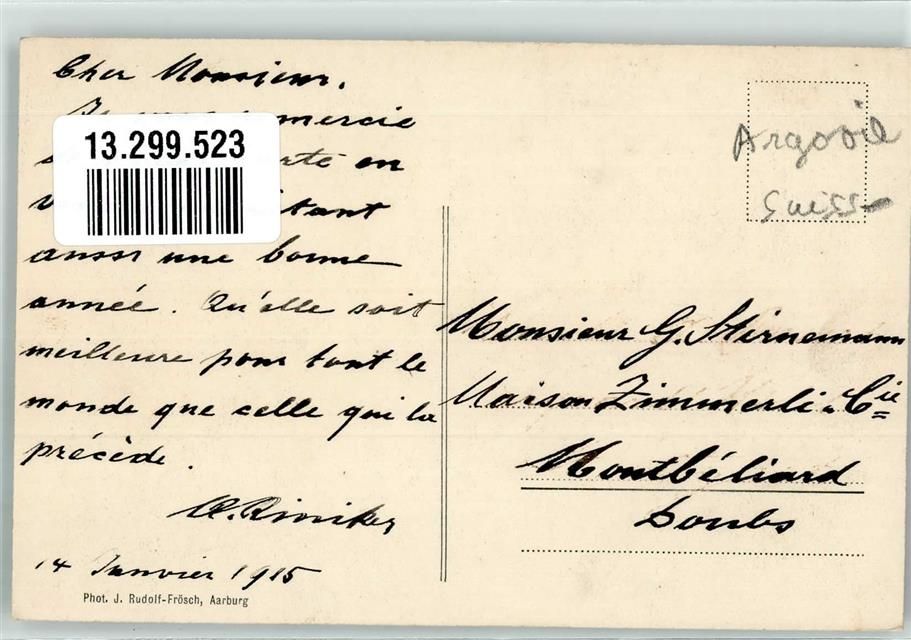 Cher Monsieur.
mercie
en
13.299.523
tant
aussi une bonne
année. Qu'elle soit
meilleure pour tout le
monde que celle qui la
précède.
14 Janvier 1915
Phot. J. Rudolf-Frösch, Aarburg
Argovie
Suisse
Monsieur G. Stirnemann
Maison Zimmerli & Cie
Montbéliard
Doubs